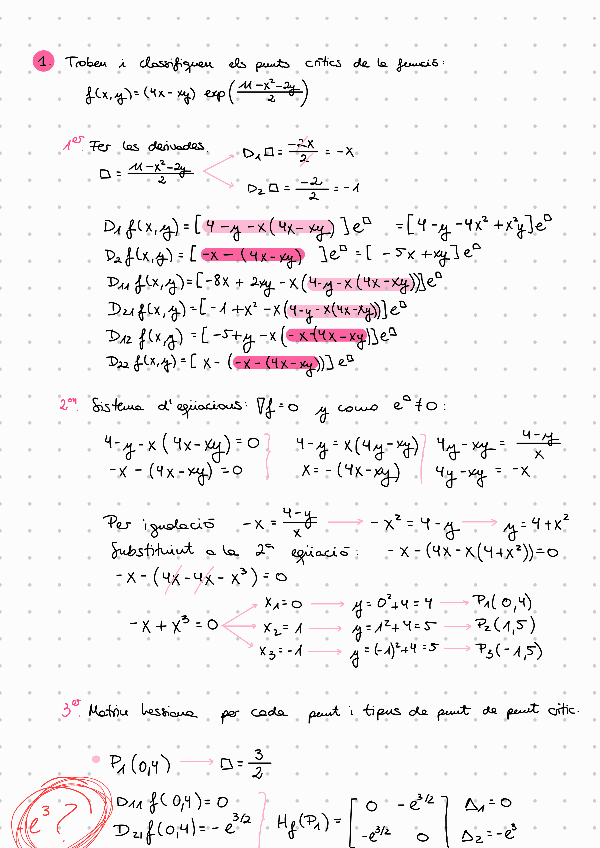 1. Troben i classifiquen els punts crítics de la funció:
f(x,y)=(4x-xy) exp((11-x²-2y)/2)
1er. Fer les derivades.
□ = (11-x²-2y)/2
D₁□ = -2x/2 = -x
D₂□ = -2/2 = -1
D₁f(x,y)=[4-y-x(4x-xy)]e^□ =[4-y-4x²+x²y]e^□
D₂f(x,y)=[-x-(4x-xy)]e^□ =[-5x+xy]e^□
D₁₁f(x,y)=[-8x+2xy-x(4-y-x(4x-xy))]e^□
D₂₁f(x,y)=[-1+x²-x(4-y-x(4x-xy))]e^□
D₁₂f(x,y)=[-5+y-x(-x-(4x-xy)]e^□
D₂₂f(x,y)=[x-(-x-(4x-xy))]e^□
2on. Sistema d'equacions: ∇f=0 y como e^□≠0:
4-y-x(4x-xy)=0 4-y=x(4y-xy) 4y-xy= (4-y)/x
-x-(4x-xy)=0 x=-(4x-xy) 4y-xy=-x
Per igualació -x= (4-y)/x → -x²=4-y → y=4+x²
Substituint a la 2ª equació: -x-(4x-x(4+x²))=0
-x-(4x-4x-x³)=0
-x+x³=0
x₁=0 → y=0²+4=4 → P₁(0,4)
x₂=1 → y=1²+4=5 → P₂(1,5)
x₃=-1 → y=(-1)²+4=5 → P₃(-1,5)
3er. Matriu hessiana per cada punt i tipus de punt de punt crític.
P₁(0,4) → □=3/2
D₁₁f(0,4)=0
D₂₁f(0,4)=-e^3/2
Hf(P₁)= [0 -e^3/2
-e^3/2 0]
Δ₁=0
Δ₂=-e³
-e³?